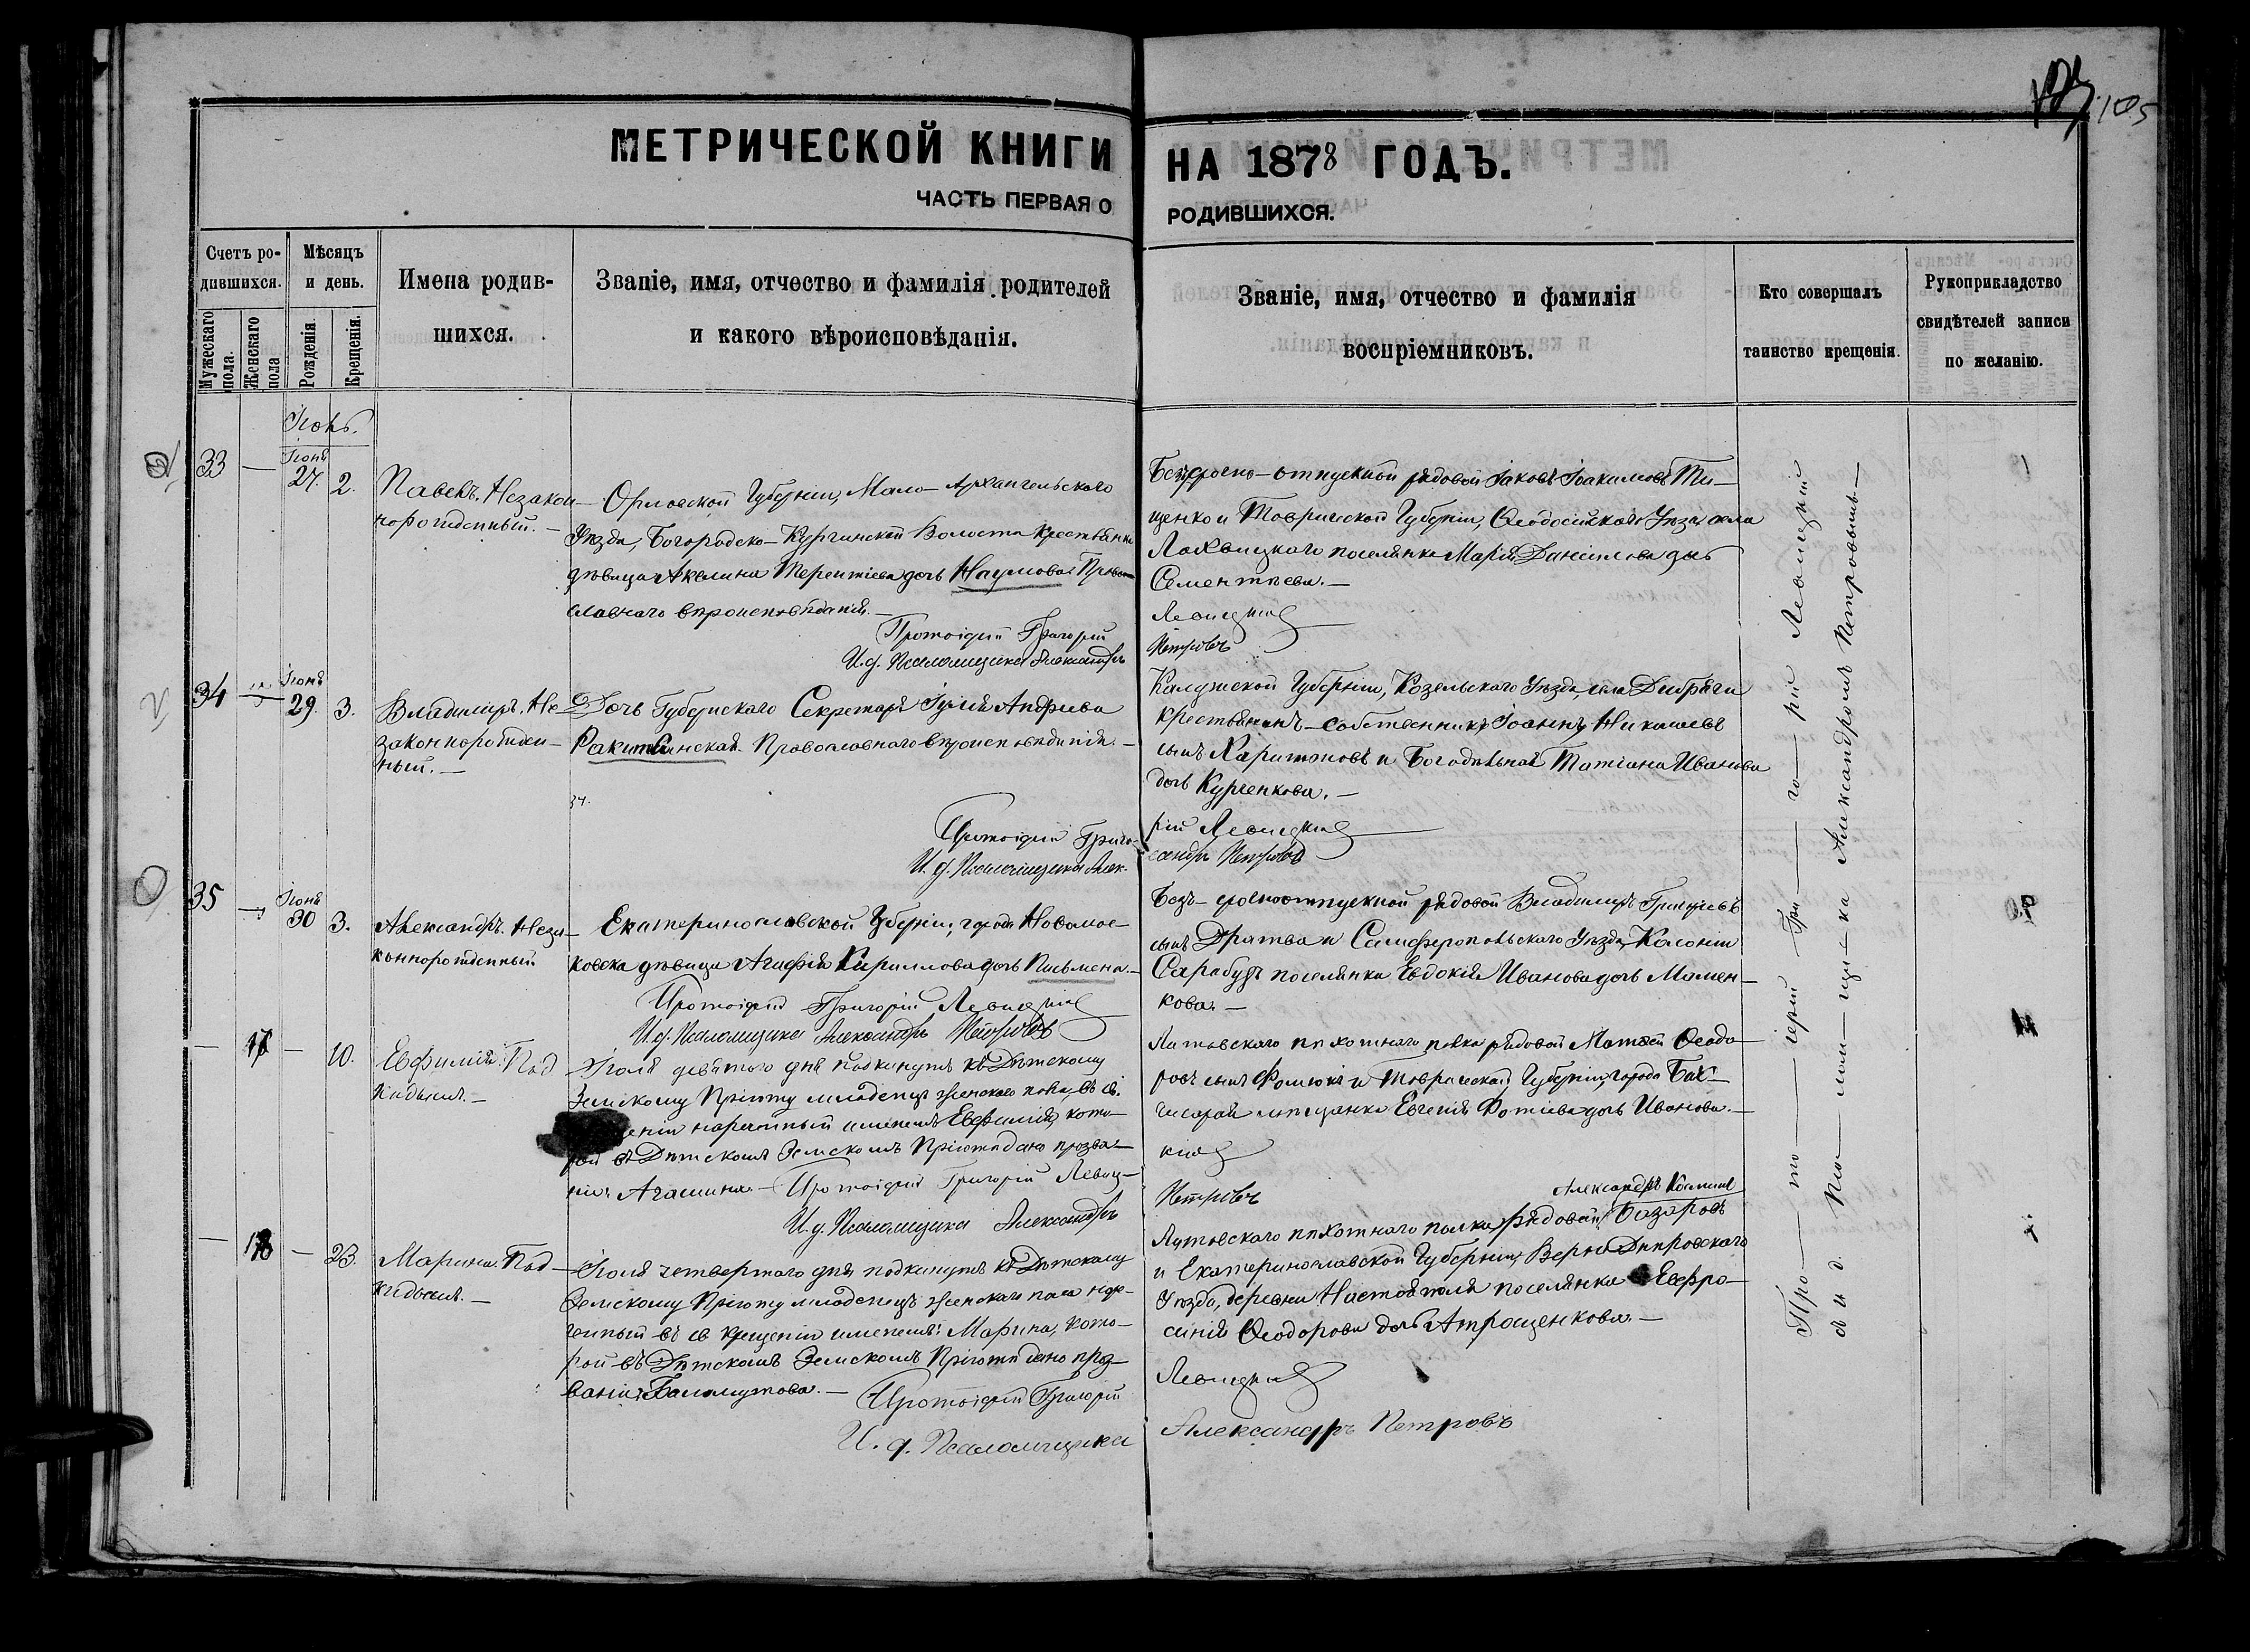 105
МЕТРИЧЕСКОЙ КНИГИ НА 1878 ГОДЪ.
ЧАСТЬ ПЕРВАЯ О РОДИВШИХСЯ.
Счетъ ро-
дившихся.
Мужескаго
пола.
Женскаго
пола
Мѣсяцъ
и день.
Рожденія.
Крещенія.
Имена родив-
шихся.
Званіе, имя, отчество и фамилія родителей
и какого вѣроисповѣданія.
Званіе, имя, отчество и фамилія
воспріемниковъ.
Кто совершалъ
таинство крещенія.
Рукоприкладство
свидѣтелей записи
по желанію.
Іюль.
33
—
Іюня
27.
2.
Павелъ. Незакон-
норожденный. —
Орловской Губерніи, Мало-Архангельскаго
Уѣзда, Богородско-Курчинской Волости крестьянка
дѣвица Акелина Терентіева дочь Наумова. Право-
славнаго вѣроисповѣданія. —
Протоіерей Григорій
И. д. Псаломщика Александръ
Безсрочно-отпускной рядовой Іаковъ Іоакимовъ Ти-
щенко и Таврической Губерніи, Ѳеодосійскаго Уѣзда, села
Лохвицкаго поселянка Марія Даніилова дочь
Сементѣева. —
Левицкій
Петровъ
34
Іюня
29.
3.
Владиміръ. Не-
законнорожден-
ный. —
Дочь Губернскаго Секретаря Іулія Андреева
Ракитянская. Православнаго вѣроисповѣданія. —
34.
Протоіерей Григо-
И. д. Псаломщика Алек-
Калужской Губерніи, Козельскаго Уѣзда, села
крестьянинъ-собственникъ Іоаннъ
сынъ Харитоновъ и Богадѣльная Татіана Иванова
дочь Курченкова. —
рій Левицкій
сандръ Петровъ
35
Іюня
30
3.
Александръ. Неза-
коннорожденный
Екатеринославской Губерніи, города Новомос-
ковска дѣвица Агафія Кириллова дочь Письмена. —
Протоіерей Григорій Левицкій
И. д. Псаломщика Александръ Петровъ
Безъ-срочноотпускной рядовой Владиміръ Григорьевъ
сынъ Дратва и Симферопольскаго Уѣзда, Колоніи
Сарабузъ поселянка Евдокія Иванова дочь Момен-
кова. —
—
17
—
10.
Евфимія. Под-
кидышъ. —
Іюля девятаго дня подкинутъ къ Дѣтскому
Земскому Пріюту младенецъ женскаго пола, въ св.
щеніи нареченный именемъ Евфимія, кото-
рой въ Дѣтскомъ Земскомъ Пріютѣ дано прозва-
ніе: Агашина. — Протоіерей Григорій Левиц-
И. д. Псаломщика Александръ
Литовскаго пѣхотнаго полка рядовой Матвей Ѳеодо-
ровъ сынъ Фомюкъ и Таврической Губерніи, города Бах-
чисарай мѣщанка Евгенія Фотіева дочь Иванова. —
кій
Петровъ
—
18
—
23.
Марина. Под-
кидышъ. —
Іюля четвертаго дня подкинутъ къ Дѣтскому
Земскому Пріюту младенецъ женскаго пола наре-
ченный въ св. крещеніи именемъ: Марина, кото-
рой въ Дѣтскомъ Земскомъ Пріютѣ дано проз-
ваніе: Баламутова. — Протоіерей Григорій
И. д. Псаломщика
Александръ Косминъ
Литовскаго пѣхотнаго полка рядовой Базаровъ
и Екатеринославской Губерніи, Верхо-Днѣпровскаго
Уѣзда, деревни поселянка Евфро-
синія Ѳеодорова дочь Атрощенкова. —
Левицкій
Александръ Петровъ
Про—то—іерей Гри—го—рій Левицкій
съ и. д. Пса—лом—щи—ка Александромъ Петровымъ. —